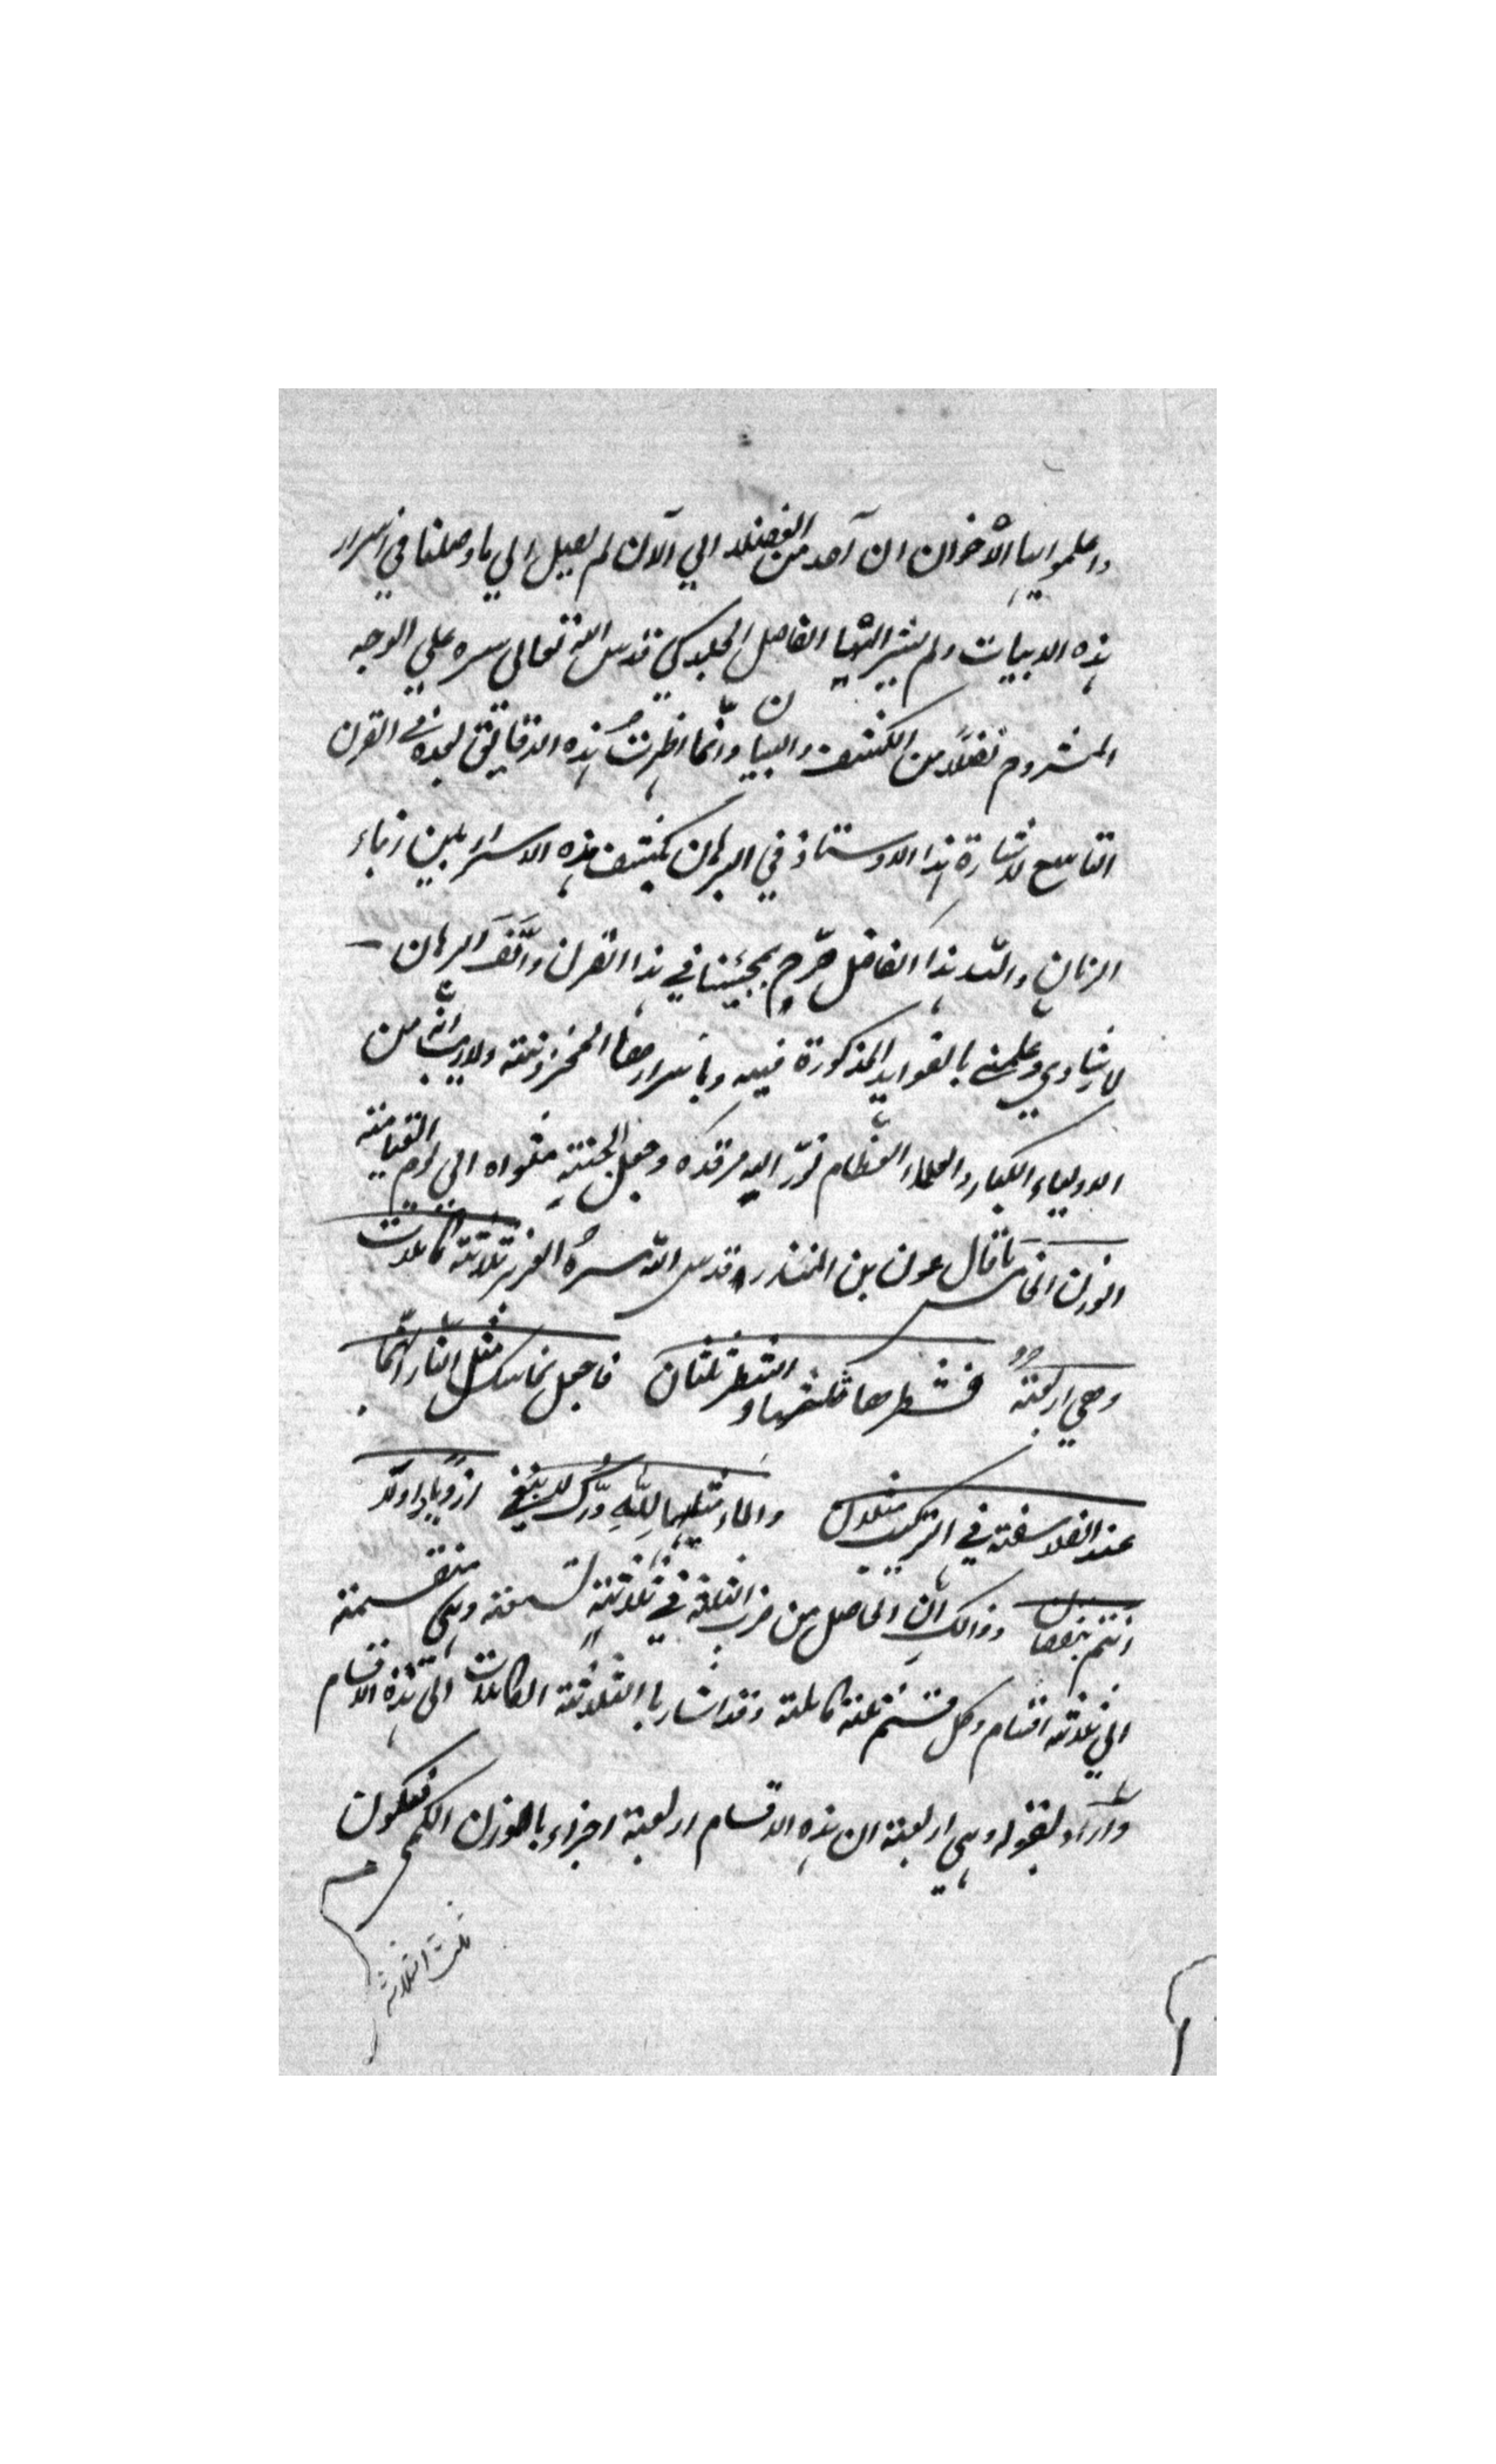 واعلموا ايها الأخوان ان آحد من الفضلاء الي الآن لم يصل الي ما وصلنا في اسرار
هذه الابيات ولم يشير اليها الفاضل الجلدكي قدس الله تعالى سره علي الوجه
المشروح فضلاً من الكشف والبيان وانّما اظهرتُ هذه الدقايق لهذه في القرن
التاسع لاشارة هذا الاوستاذ في البرهان بكشف هذه الاسرار بين ابناء
الزمان والله هذا الفاضل صرّح بمجيئنا في هذا القرن وألّف البرهان
لارشادي وعلمني بالفوايد المذكورة فيه وباسرارها المخزونة ولاريب انّه من
الاولياء الكبار والعلماء العظام نوّر الله مرقده وجعل الجنة مثواه الي يوم القيامة
الوزن الخامس ما قال عون بن المنذر قدس الله سره العزيز ثلاثة كاملات
وهي اربعة فشطرها ثلثها والشطر ثلثان فاجعل نحاسك مثل النار انّهما
عند الفلاسفة في التركيب مثلان والماء مثليهما لله درّك لا ينبغي ازدياد اولا
انتم بنقصان وذالك ان الحاصل من ضرب الثلثة في ثلاثة تسعة وهي منقسمة
الي ثلاثة اقسام وكل قسم ثلثة كاملة وقد اشار باالثلاثة الكاملات الي هذه الاقسام
وأراد بقوله وهي اربعة ان هذه الاقسام اربعة اجزاء بالوزن الكمي فيكون
تلك الثلاثة